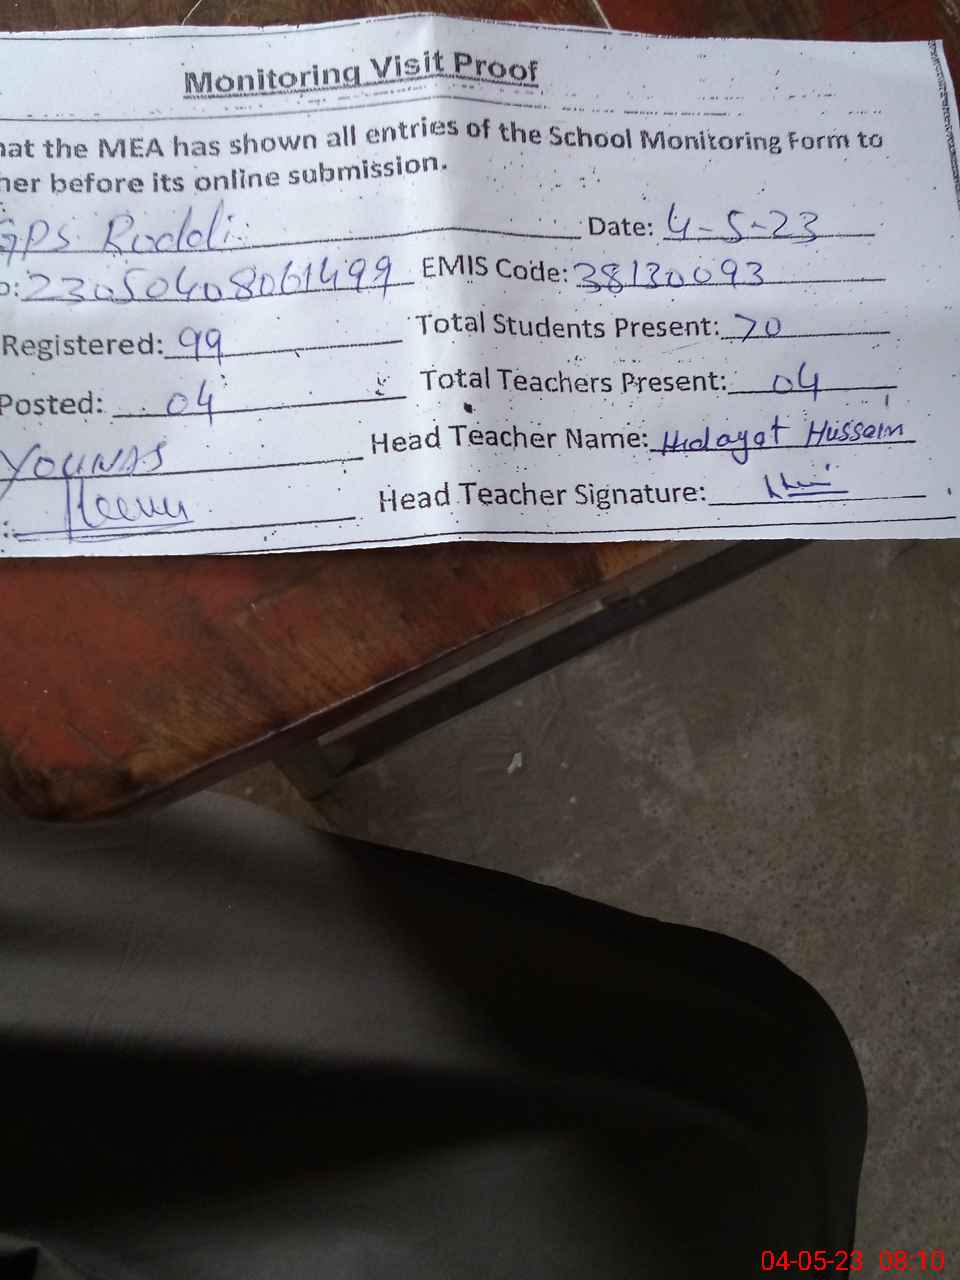 Monitoring Visit Proof
hat the MEA has shown all entries of the School Monitoring Form to
her before its online submission.
GPS Roddi Date: 4-5-23
o: 23050408061499 EMIS Code: 38130093
Registered: 99 Total Students Present: 70
Posted: 04 Total Teachers Present: 04
YOUNAS Head Teacher Name: Hidayat Hussain
Head Teacher Signature:
04-05-23 08:10